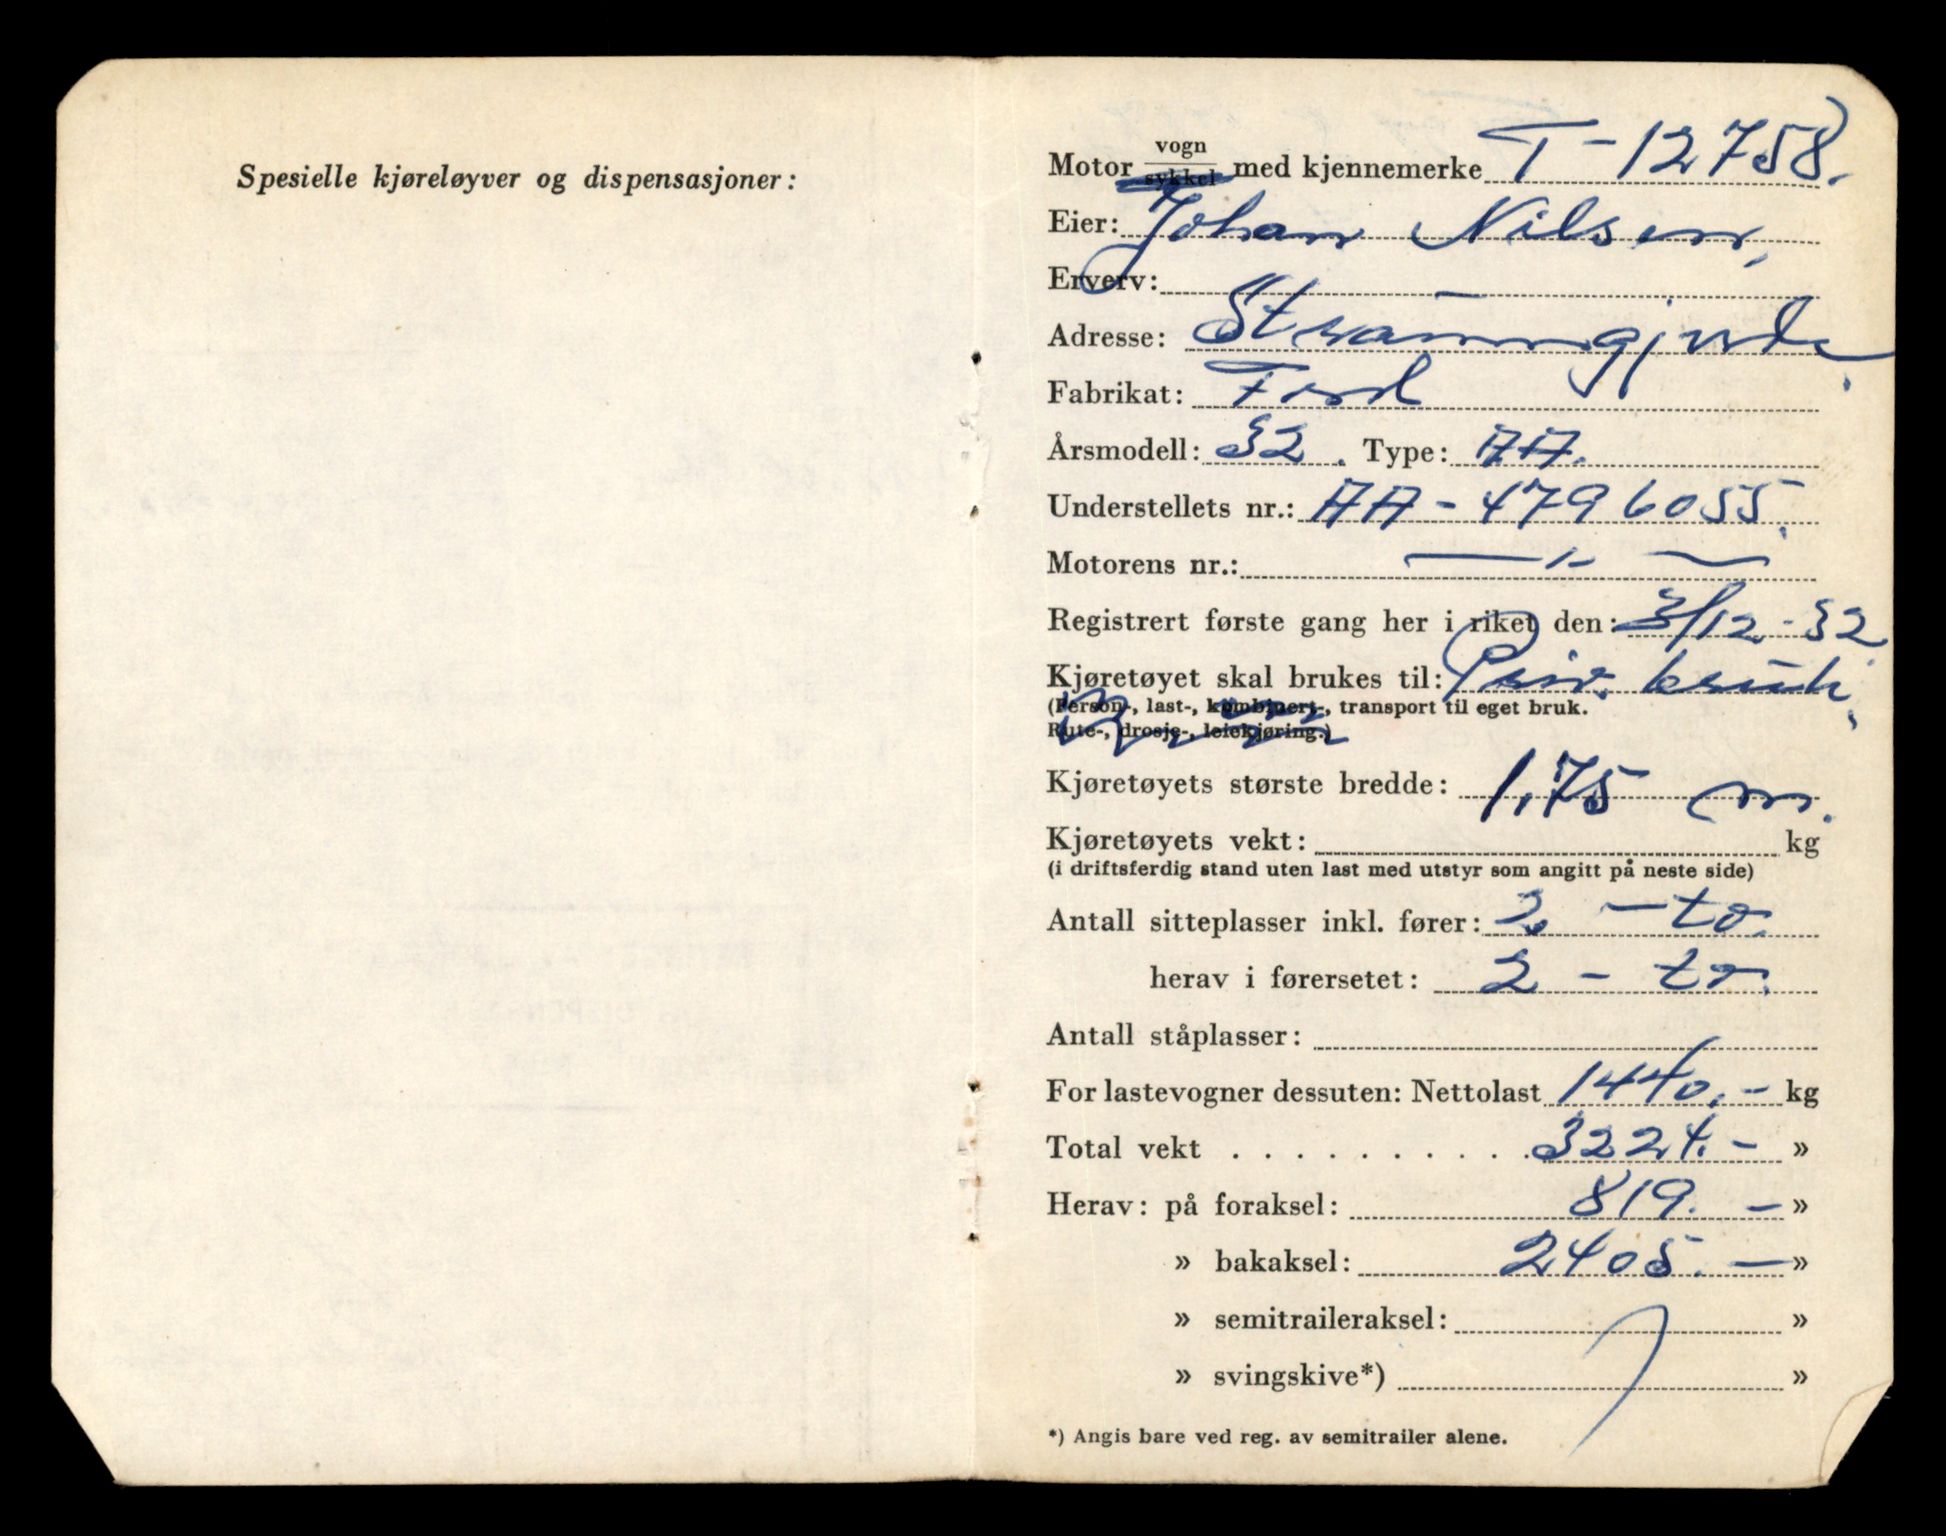 Spesielle kjøreløyver og dispensasjoner:
Motor vogn/sykkel med kjennemerke T-12758.
Eier: Johan Nilsen,
Erverv: —
Adresse: Straumgjerde.
Fabrikat: Ford
Årsmodell: 32. Type: AA.
Understellets nr.: AA-4796055.
Motorens nr.: — " —
Registrert første gang her i riket den: 3/12-32
Kjøretøyet skal brukes til: Priv. bruk,
(Person-, last-, kombinert-, transport til eget bruk.
Rute-, drosje-, leiekjøring.)
Kjøretøyets største bredde: 1,75 m.
Kjøretøyets vekt: kg
(i driftsferdig stand uten last med utstyr som angitt på neste side)
Antall sitteplasser inkl. fører: 2 - to.
herav i førersetet: 2 - to.
Antall ståplasser:
For lastevogner dessuten: Nettolast 1440.- kg
Total vekt . . . . . . . . . . 3224.- »
Herav: på foraksel: 819. - »
» bakaksel: 2405. - »
» semitraileraksel: »
» svingskive*) »
*) Angis bare ved reg. av semitrailer alene.